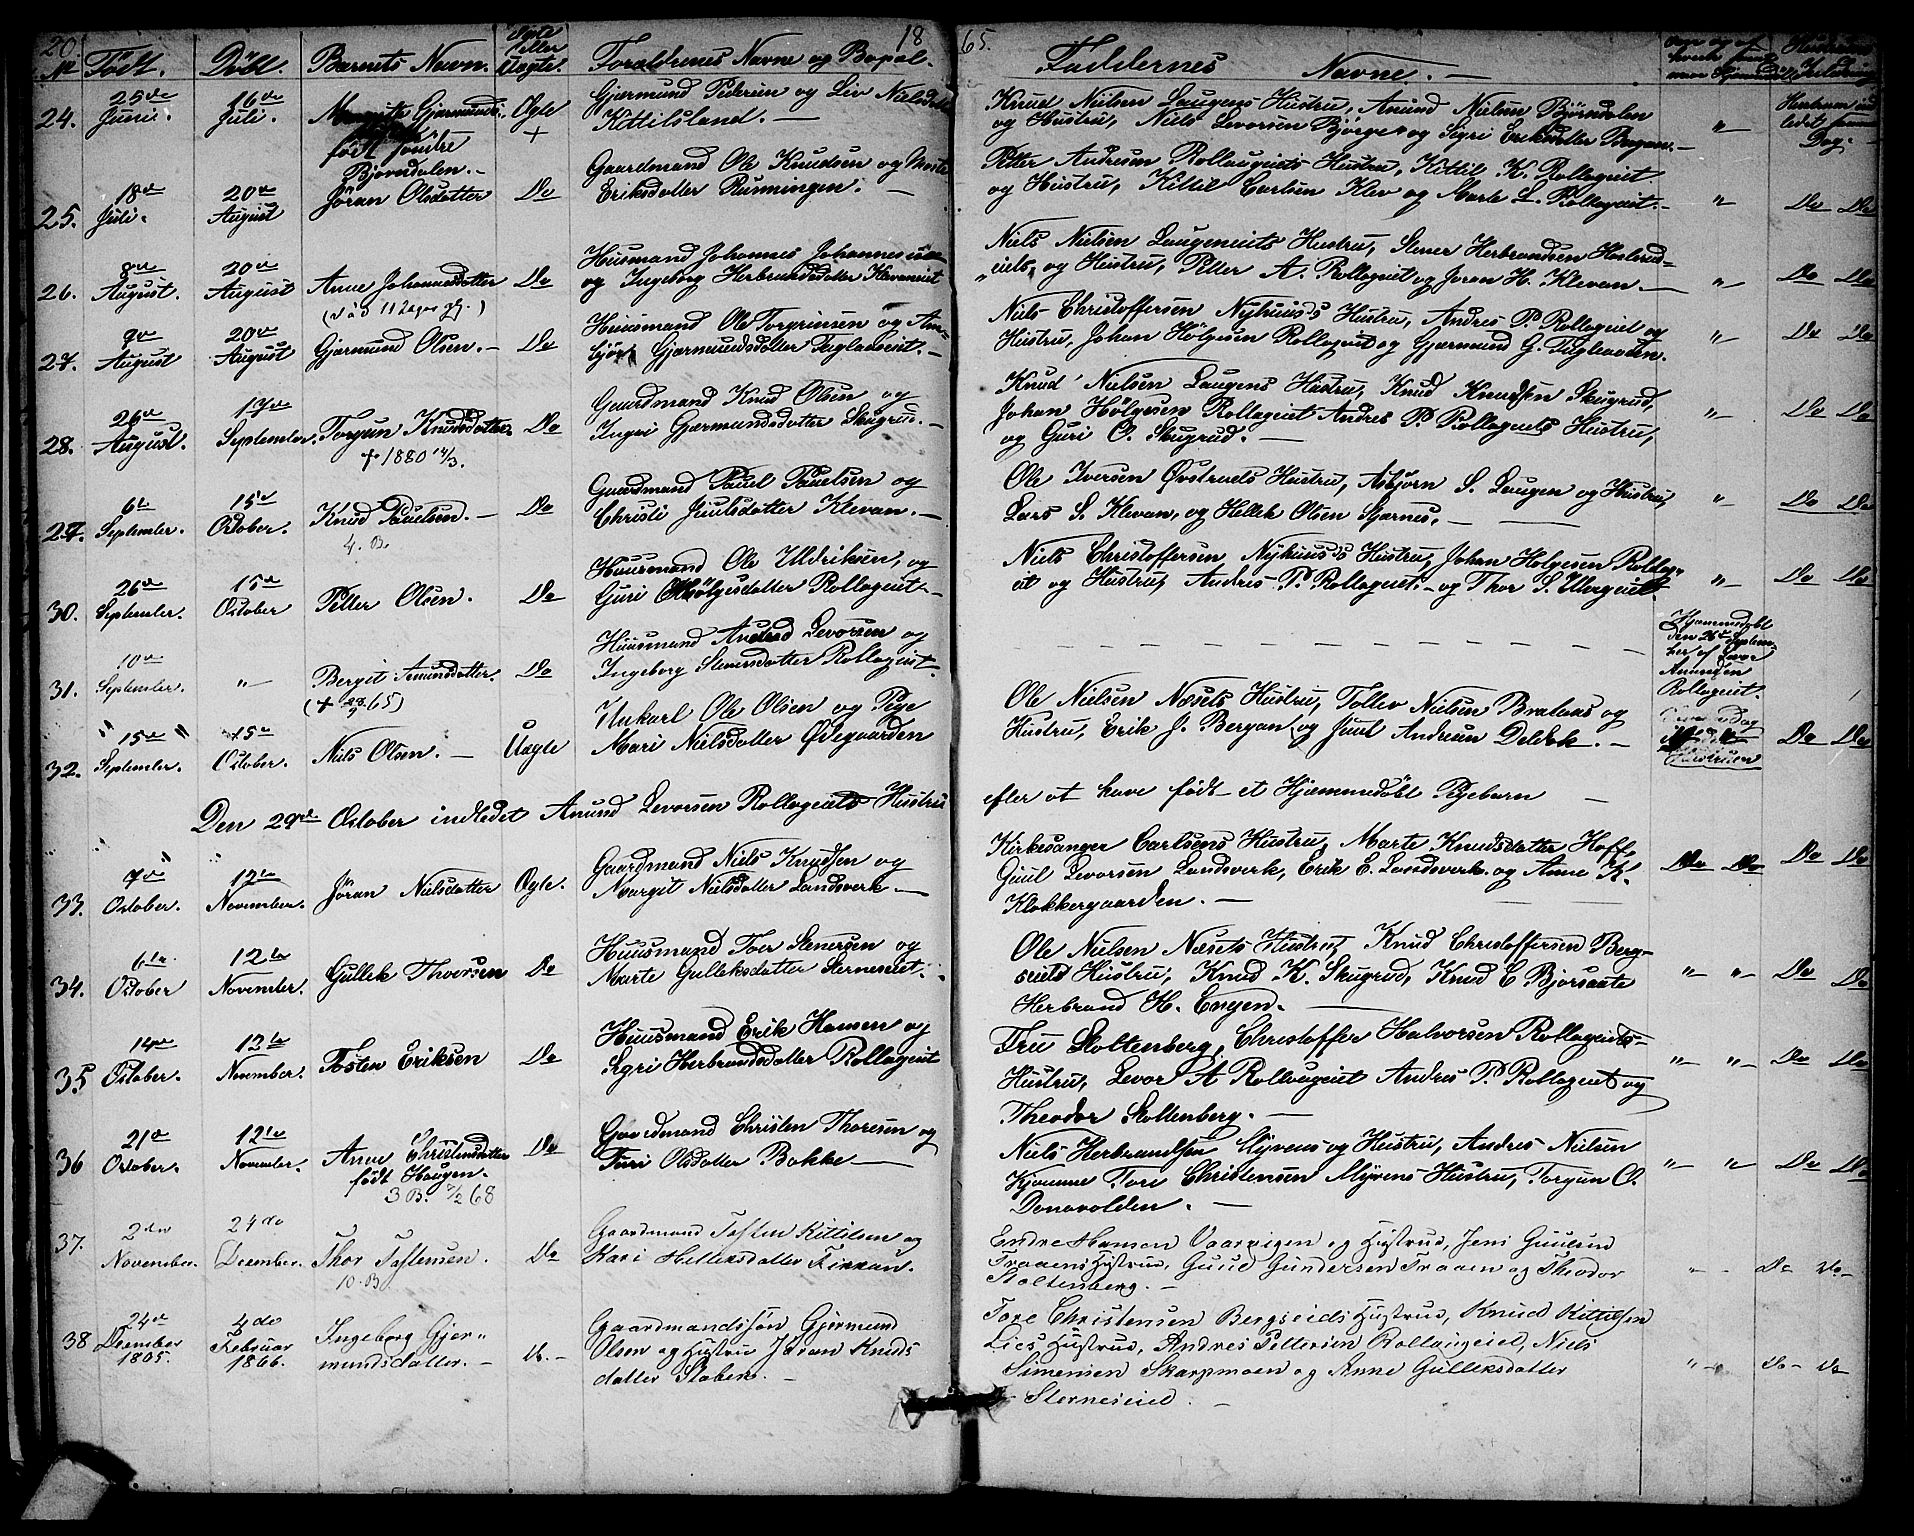 20
18 65.
No Födt. Döbt. Barnets Navn. Ægte eller Uægte. Forældrenes Navne og Bopæl. Faddernes Navne. —
24. 25de Juni. 16de Juli. Gjermunds. Ægte +
födt söndre
Bjovndalen. —
Gjermund Pedersen og Liv Nielsdatter
Kittilsland. —
Knud Nielsen Laugens Hustru, Anund Nielsen Björndalen
og Hustru, Niels Levorsen Björge og Sigri Eriksdatter Bergan. —
25. 18de Juli. 20de August Jöran Olsdatter Do
Gaardmand Ole Knudsen og
Eriksdatter Runningen. —
Petter Andresen Rollaugeiets Hustru, Kittil K. Rollageiet
og Hustru, Kittil Carlsen Klev og Marte L. Rollageiet. — " Do Do
26. 8de August. 20de August Anne Johannesdatter Do
Husmand Johannes Johannessen
og Ingeborg Herbrandsdatter Klevaneiet
Niels Nielsen Laugeneiets Hustru, Stener Herbrandsen
eiets og Hustru, Petter A. Rollageiet og Joran H. Klevan. — " Do Do
27. 9de August 20de August Gjermund Olsen. — Do
Huusmand Ole Torgrimsen og
Gjermundsdatter Tagladseiet. —
Niels Christoffersen Nyhuusds Hustru, Andres P. Rollageiet og
Hustru, Johan Hölgesen Rollageiet og Gjermund G. " Do Do
28. 26de August. 17de September. Torgun Knudsdatter. Do
+ 1880 14/3.
Gaardmand Knud Olsen og
Ingri Gjermundsdatter Skugrud. —
Knud Nielsen Laugens Hustru, Knud Knudsen Skugrud,
Johan Hölgesen Rollageiet Andres P. Rollageiets Hustru,
og Guri O. Skugrud. — " Do Do
27. 6te September. 15de October. Knud Paulsen. — Do
4. B.
Gaardmand Paul Paulsen og
Christi Juulsdatter Klevan. —
Ole Iversen Övstruds Hustru, Asbjörn S. Laugen og Hustru,
Lars S. Klevan, og Hellek Olsen Stjarnes. — " Do Do
30. 26de September. 15de October Petter Olsen. Do
Huusmand Ole Uldriksen, og
Guri Hölgesdatter Rollageiet. —
Niels Christoffersen Nyhuusds Hustru, Johan Holgesen Rollag-
eit og Hustru, Andres P. Rollageiet. — og Thor S. " Do Do
31. 10de September. " Bergit Anundsdatter. Do
(+ 28/9 65)
Huusmand Anund Levorsen og
Ingeborg Stensdatter Rollageiet.
Hjemmedöbt
den 26de Septem-
ber af Levor
Anundsen
Rollageiet.
32. 15de September. 15de October. Niels Olsen. — Uægte
Ungkarl Ole Olsen og Pige
Mari Nielsdatter Ödegaarden
Ole Nielsen Næsets Hustru, Tollev Nielsen Brataas og
Hustru, Erik J. Bergan, og Juul Andresen Deldok. — Do Do
Den 29de October indledet Anund Levorsen Rollageiets Hustru
efter at have födt et Hjemmedöbt Pigebarn —
33. 7de October. 12te November. Jöran Nielsdatter Ægte.
Gaardmand Niels Knudsen og
Margit Nielsdatter Landsverk —
Kirkesanger Carlsens Hustru, Marte Knudsdatter Hoff,
Guul Levorsen Landsverk, Erik E. Landsverk og Anne K.
Klokkergaarden. — Do Do Do Do
34. 6te October 12te November. Gullik Thorsen Do
Huusmand Toer Stenersen og
Marte Gulleksdatter Sterneseiet.
Ole Nielsen Næsets Hustru, Knud Christoffersen Berg-
seiets Hustru, Knud K. Skugrud, Knud C. Bjorsaate
Herbrand H. Engen. — " " Do Do
35 14de October. 12te November. Tosten Eriksen Do
Huusmand Erik Hansen og
Sigri Herbrandsdatter Rollageiet
Fru Stoltenberg, Christoffer Halvorsen Rollageiets
Hustru, Levor A Rollaugeiet Andres P. Rollageiet og
Theodor Stoltenberg. — " " Do Do
36 21de October. 12te November. Anne Christensdatter Do
födt Haugen.
3 B. 7/2 68
Gaardmand Christen Thoresen og
Turi Olsdatter Bakke —
Niels Herbrandsen Myrens og Hustru, Andres Nielsen
Kjomme Tore Christensen Myrens Hustru, Torgun O.
Donavolden. — " " Do Do
37. 2den November. 24de December. Thor Tostensen. Do
10. B.
Gaardmand Tosten Kittilsen og
Kari Helleksdatter Fikkan.
Endre Hansen Vaarvigen og Hustru, Jens Guulsen
Traaens Hustru, Guul Gundersen Traaen og Theodor
Stoltenberg. — " " Do Do
38 24de December 1865. 4de Februar 1866. Ingeborg Gjer-
mundsdatter. — Do. —
Gaardmandssön Gjermund
Olsen og Hustru Jöran Knuds
datter Stabere. —
Tore Christensen Bergseids Hustru, Knud Kittilsen
Lies Hustru, Andres Pettersen Rollaugeiet, Niels
Simensen Skarpmoen og Anne Gulleksdatter
Sterneseied. — " " Do Do